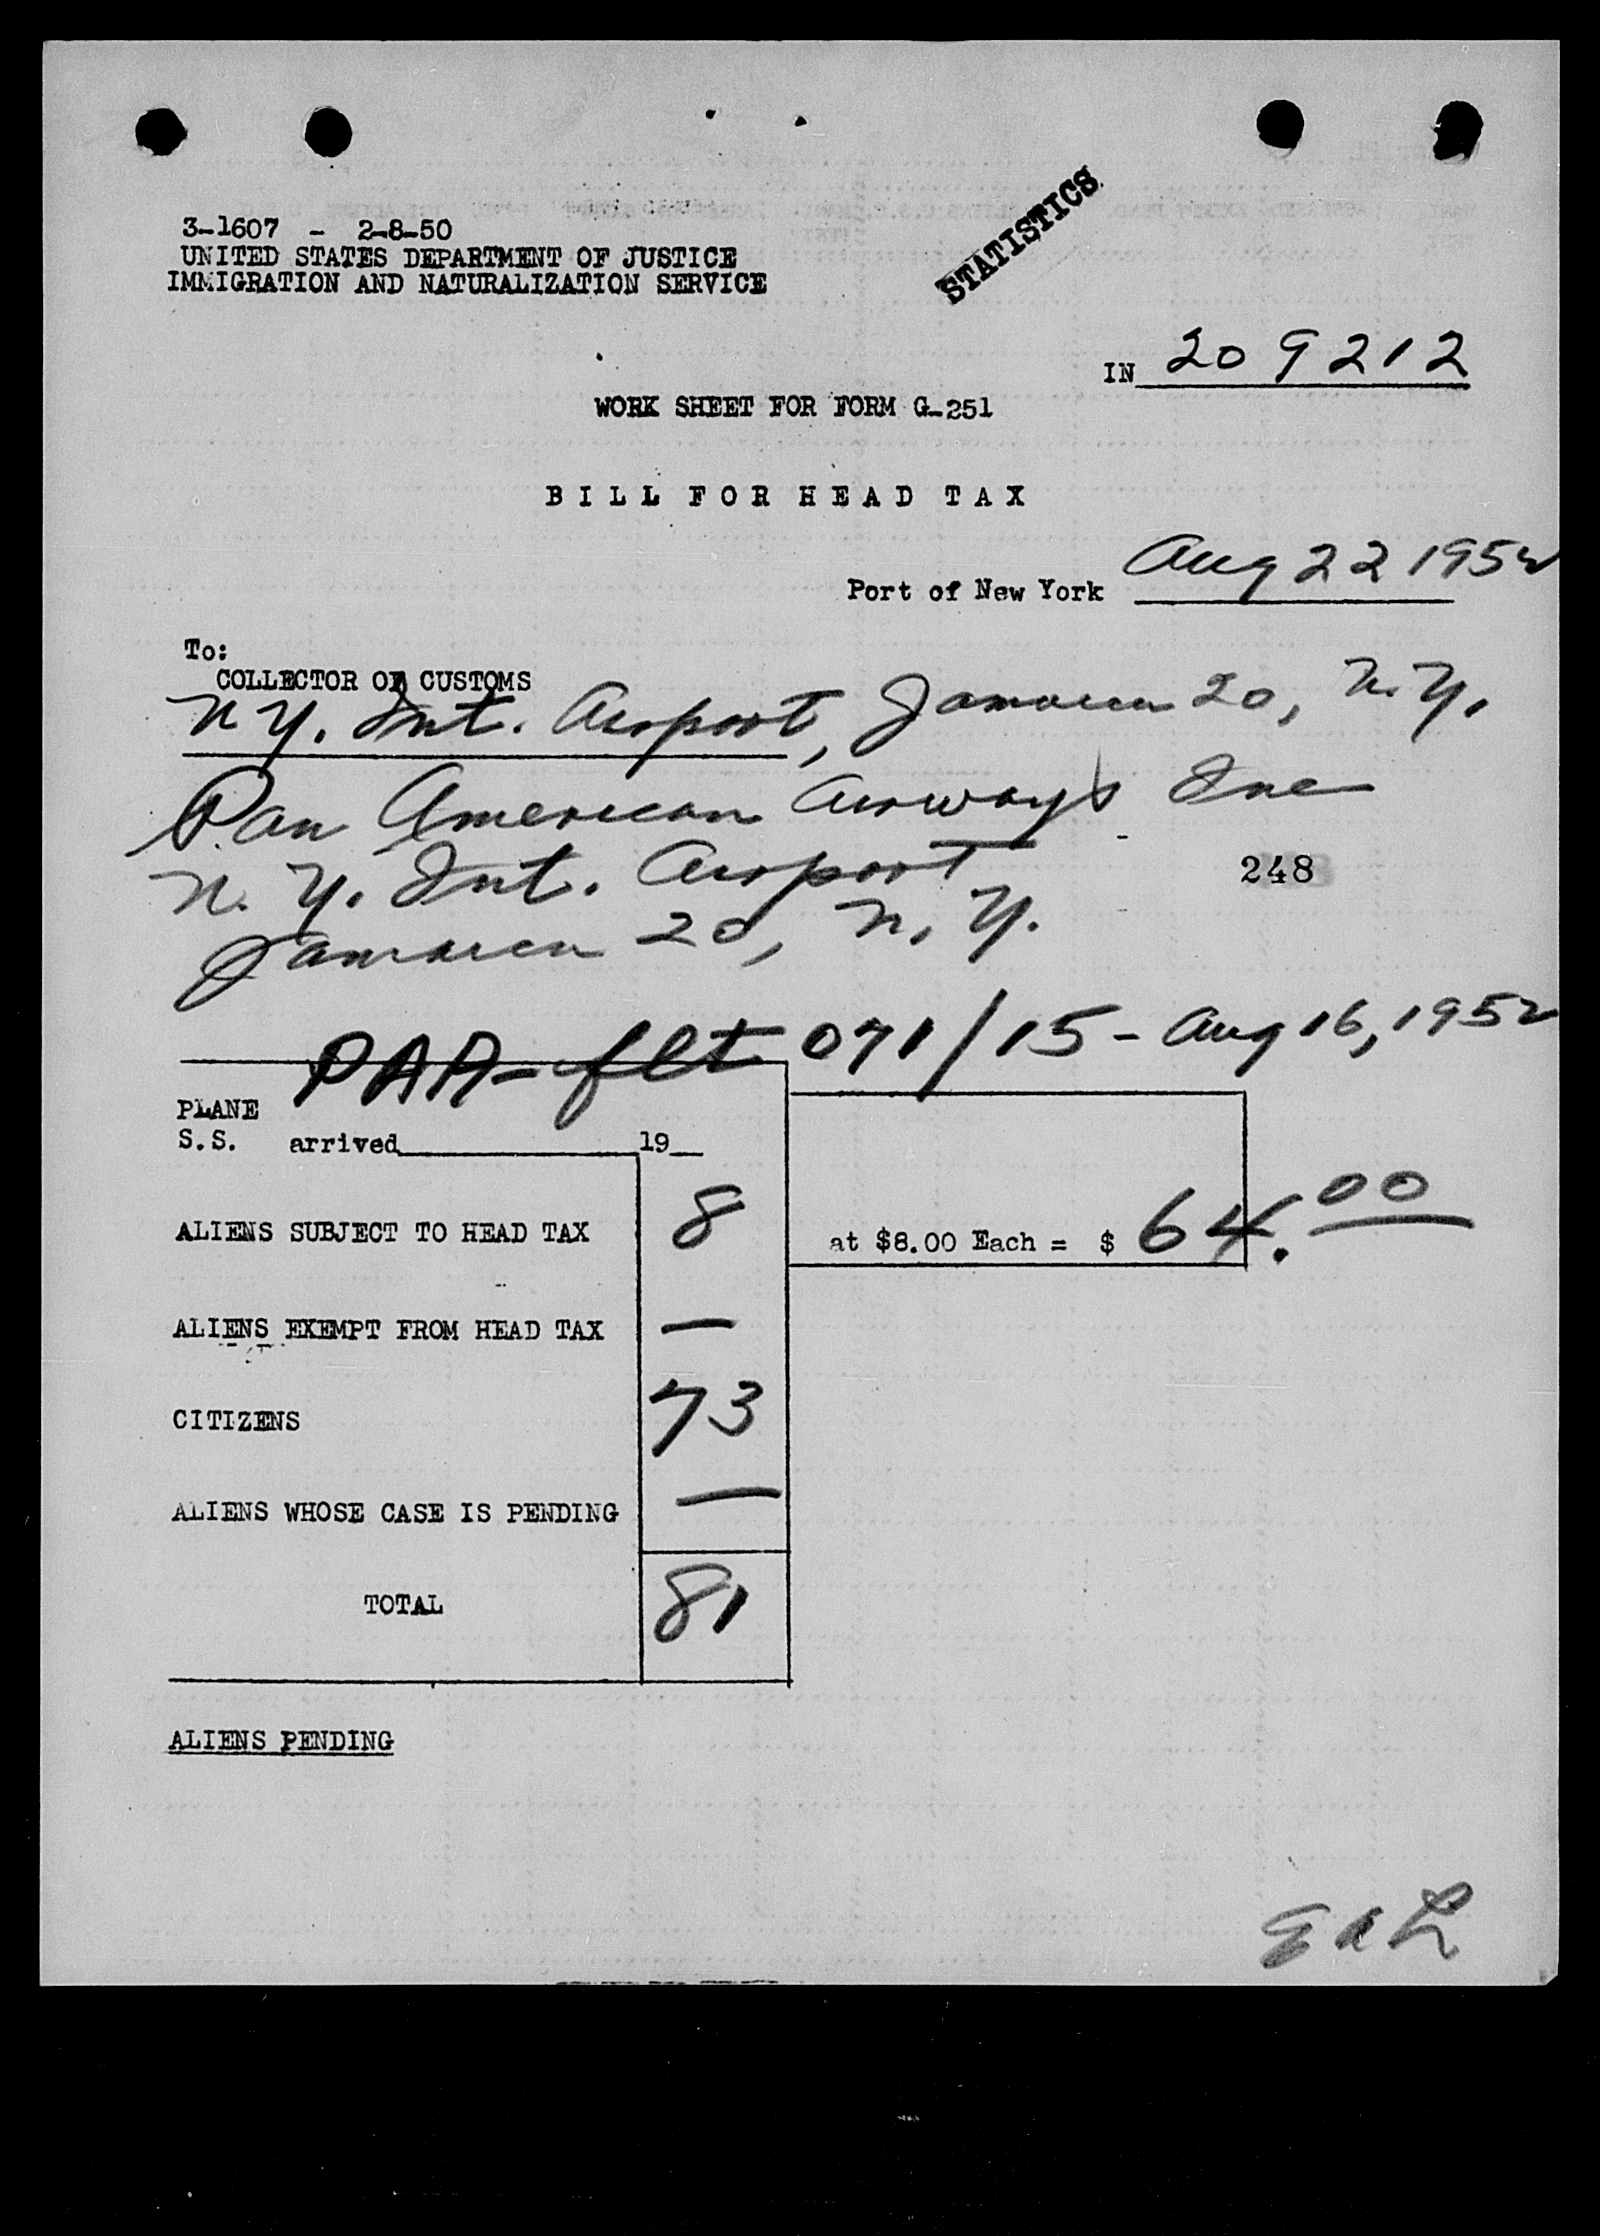 STATISTICS
3-1607 - 2-8-50
UNITED STATES DEPARTMENT OF JUSTICE
IMMIGRATION AND NATURALIZATION SERVICE
IN 209212
WORK SHEET FOR FORM G-251
BILL FOR HEAD TAX
Port of New York Aug 22 1952
To:
COLLECTOR OF CUSTOMS
N Y. Int. Airport, Jamaica 20, N.Y.
Pan American Airways Inc
N. Y. Int. Airport
248
Jamaica 20, N. Y.
PAA - flt 071/15 - Aug 16, 1952
PLANE
S.S. arrived 19
ALIENS SUBJECT TO HEAD TAX 8 at $8.00 Each = $ 64.00
ALIENS EXEMPT FROM HEAD TAX —
CITIZENS 73
ALIENS WHOSE CASE IS PENDING —
TOTAL 81
ALIENS PENDING